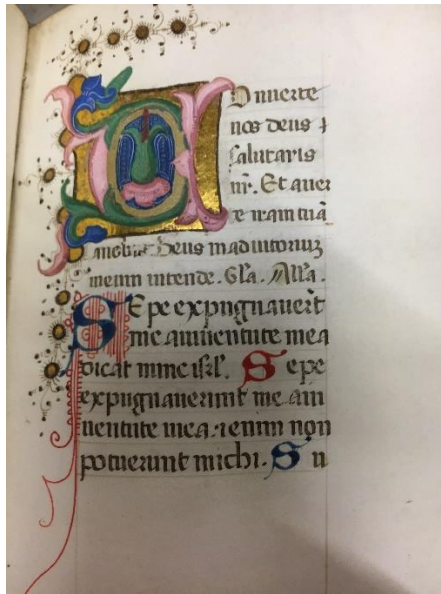 COnuerte
nos deus
salutaris
nr̄. Et auer
te iram tuā
a nobis. Deus in adiutoriuz
meum intende. Gl̄a. All̄a.
SEpe expugnauerūt
me a iuuentute mea
dicat nunc isrl̄. Sepe
expugnauerunt me a iu
uentute mea. etenim non
potuerunt michi. Su